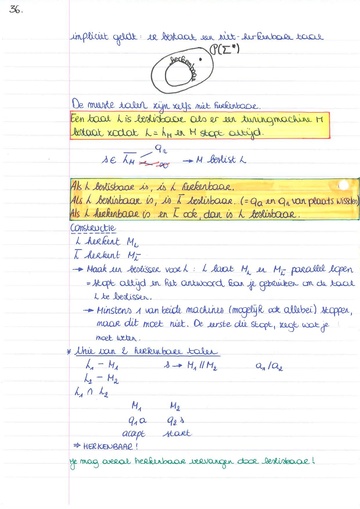 36.
impliciet geldt: er bestaat een niet-herkenbare taal
P(Σ*)
herkenbaar
De meeste talen zijn zelfs niet herkenbaar.
Een taal L is beslisbaar als er een turingmachine M
bestaat zodat L = L_M en M stopt altijd.
→ M beslist L
Als L beslisbaar is, is L herkenbaar.
Als L beslisbaar is, is L̅ beslisbaar. (= qa en qr van plaats wisselen)
Als L herkenbaar is en L̅ ook, dan is L beslisbaar.
Constructie
L herkent M_L
L̅ herkent M_L̅
→ Maak een beslisser voor L: L laat M_L en M_L̅ parallel lopen
= stopt altijd en het antwoord kan je gebruiken om de taal
L te beslissen.
→ Minstens 1 van beide machines (mogelijk ook allebei) stoppen,
maar dit moet niet. De eerste die stopt, zegt wat je
moet weten.
* Unie van 2 herkenbare talen
L₁ – M₁ s → M₁ // M₂ q₁ / q₂
L₂ – M₂
L₁ ∩ L₂
M₁ M₂
q₁ a q₂ s
accept start
⇒ HERKENBAAR!
Je mag overal herkenbaar vervangen door beslisbaar!